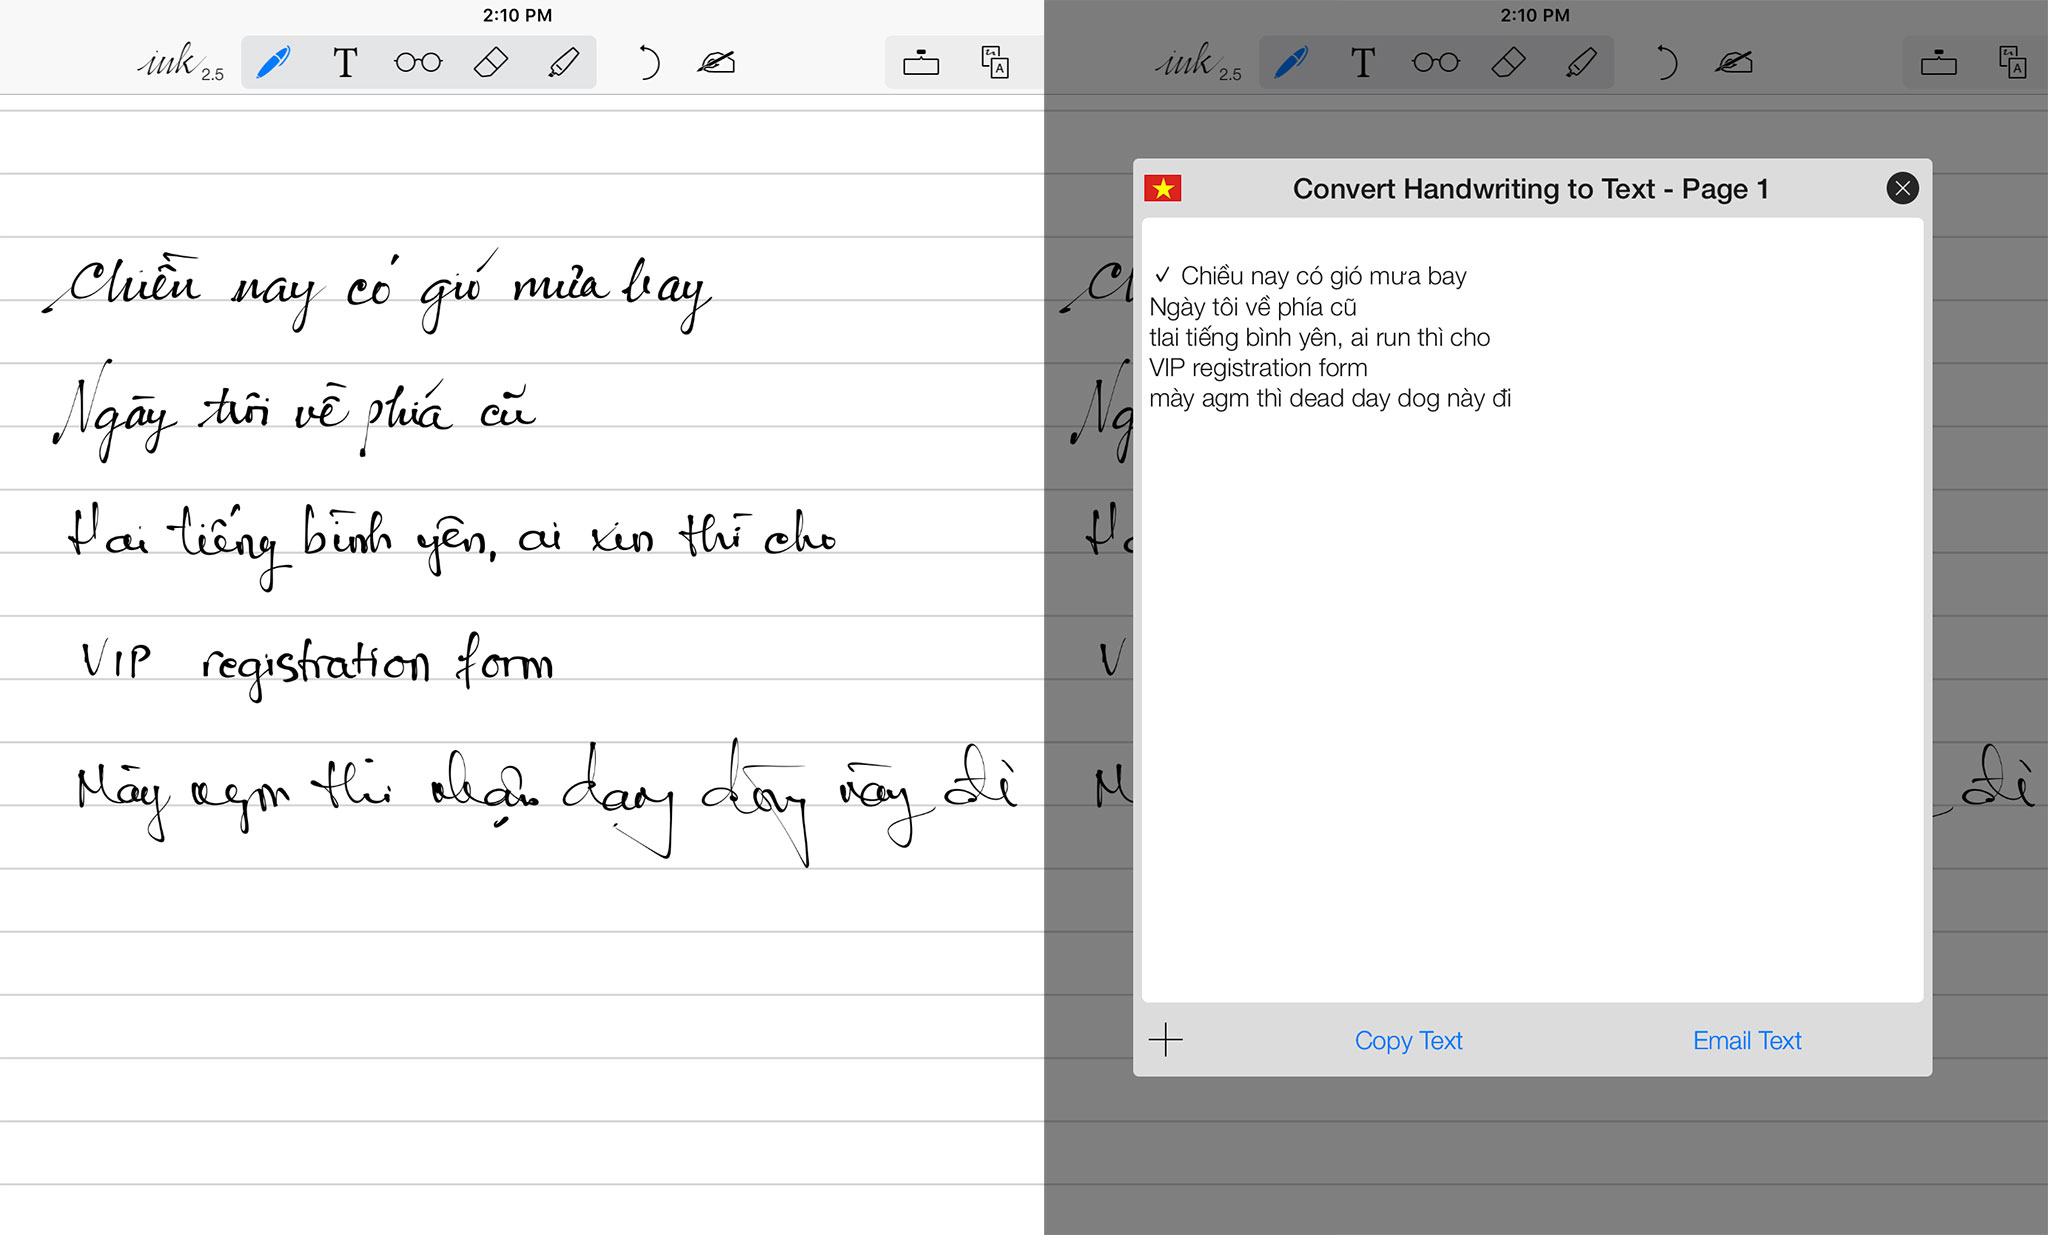 2:10 PM
ink 2.5 T A
Chiều nay có gió mưa bay
Ngày tôi về phía cũ
Hai tiếng bình yên, ai xin thì cho
VIP registration form
Mày agm thì nhận dạng dòng này đi
2:10 PM
ink 2.5 T A
Convert Handwriting to Text - Page 1
✓ Chiều nay có gió mưa bay
Ngày tôi về phía cũ
tlai tiếng bình yên, ai run thì cho
VIP registration form
mày agm thì dead day dog này đi
Copy Text
Email Text
C
Ng
Ha
V
M
đi